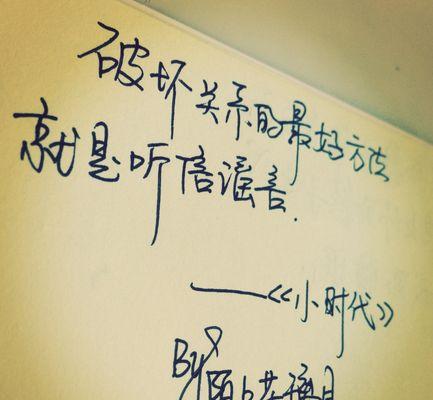 破坏关系的最好方法
就是听信谣言.
——《小时代》
By 陌上花